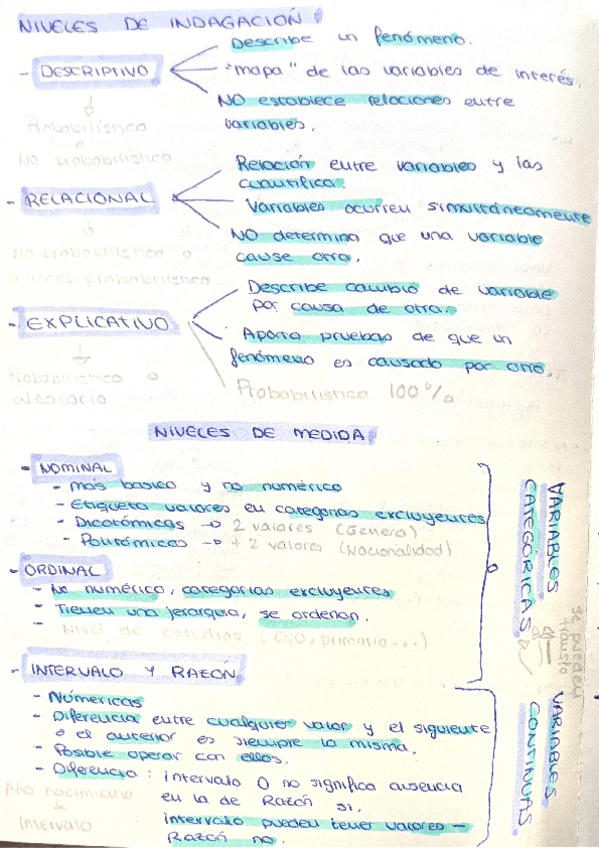 NIVELES DE INDAGACIÓN
- DESCRIPTIVO
Describe un fenómeno.
"mapa" de las variables de interés.
NO establece relaciones entre
variables.
Probabilístico
o
No probabilístico
- RELACIONAL
Relación entre variables y las
cuantifica.
Variables ocurren simultáneamente
NO determina que una variable
cause otra.
No probabilístico o
a veces probabilístico
- EXPLICATIVO
Describe cambio de variable
por causa de otra.
Aporta pruebas de que un
fenómeno es causado por otro.
Probabilístico 100%
Probabilístico o
aleatorio
NIVELES DE MEDIDA
- NOMINAL
- más basico y no numérico
- Etiqueta valores en categorías excluyentes
- Dicotómicas → 2 valores (Genero)
- Politómicas → +2 valores (Nacionalidad)
- ORDINAL
- No numérico, categorías excluyentes
- Tienen una jerarquía, se ordenan.
- Nivel de estudios (ESO, primaria...)
VARIABLES
CATEGÓRICAS
se pueden
- INTERVALO Y RAZÓN
- Númericas
- Diferencia entre cualquier valor y el siguiente
o el anterior es siempre la misma.
- Posible operar con ellos.
- Diferencia: intervalo 0 no significa ausencia
en la de Razón si.
intervalo pueden tener valores -
Razón no.
Año nacimiento
Intervalo
VARIABLES
CONTINUAS